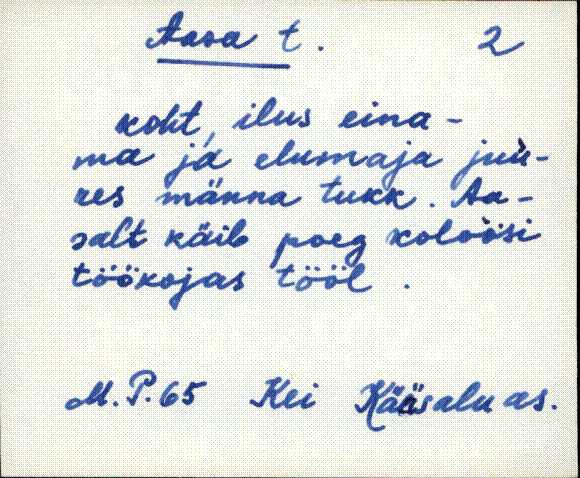 Aasa t. 2
koht, ilus eina-
ma ja elumaja juu-
res männa tukk. Aa-
salt käib poeg koloosi
töökojas tööl.
M.P.65 Kei Kääsalu as.